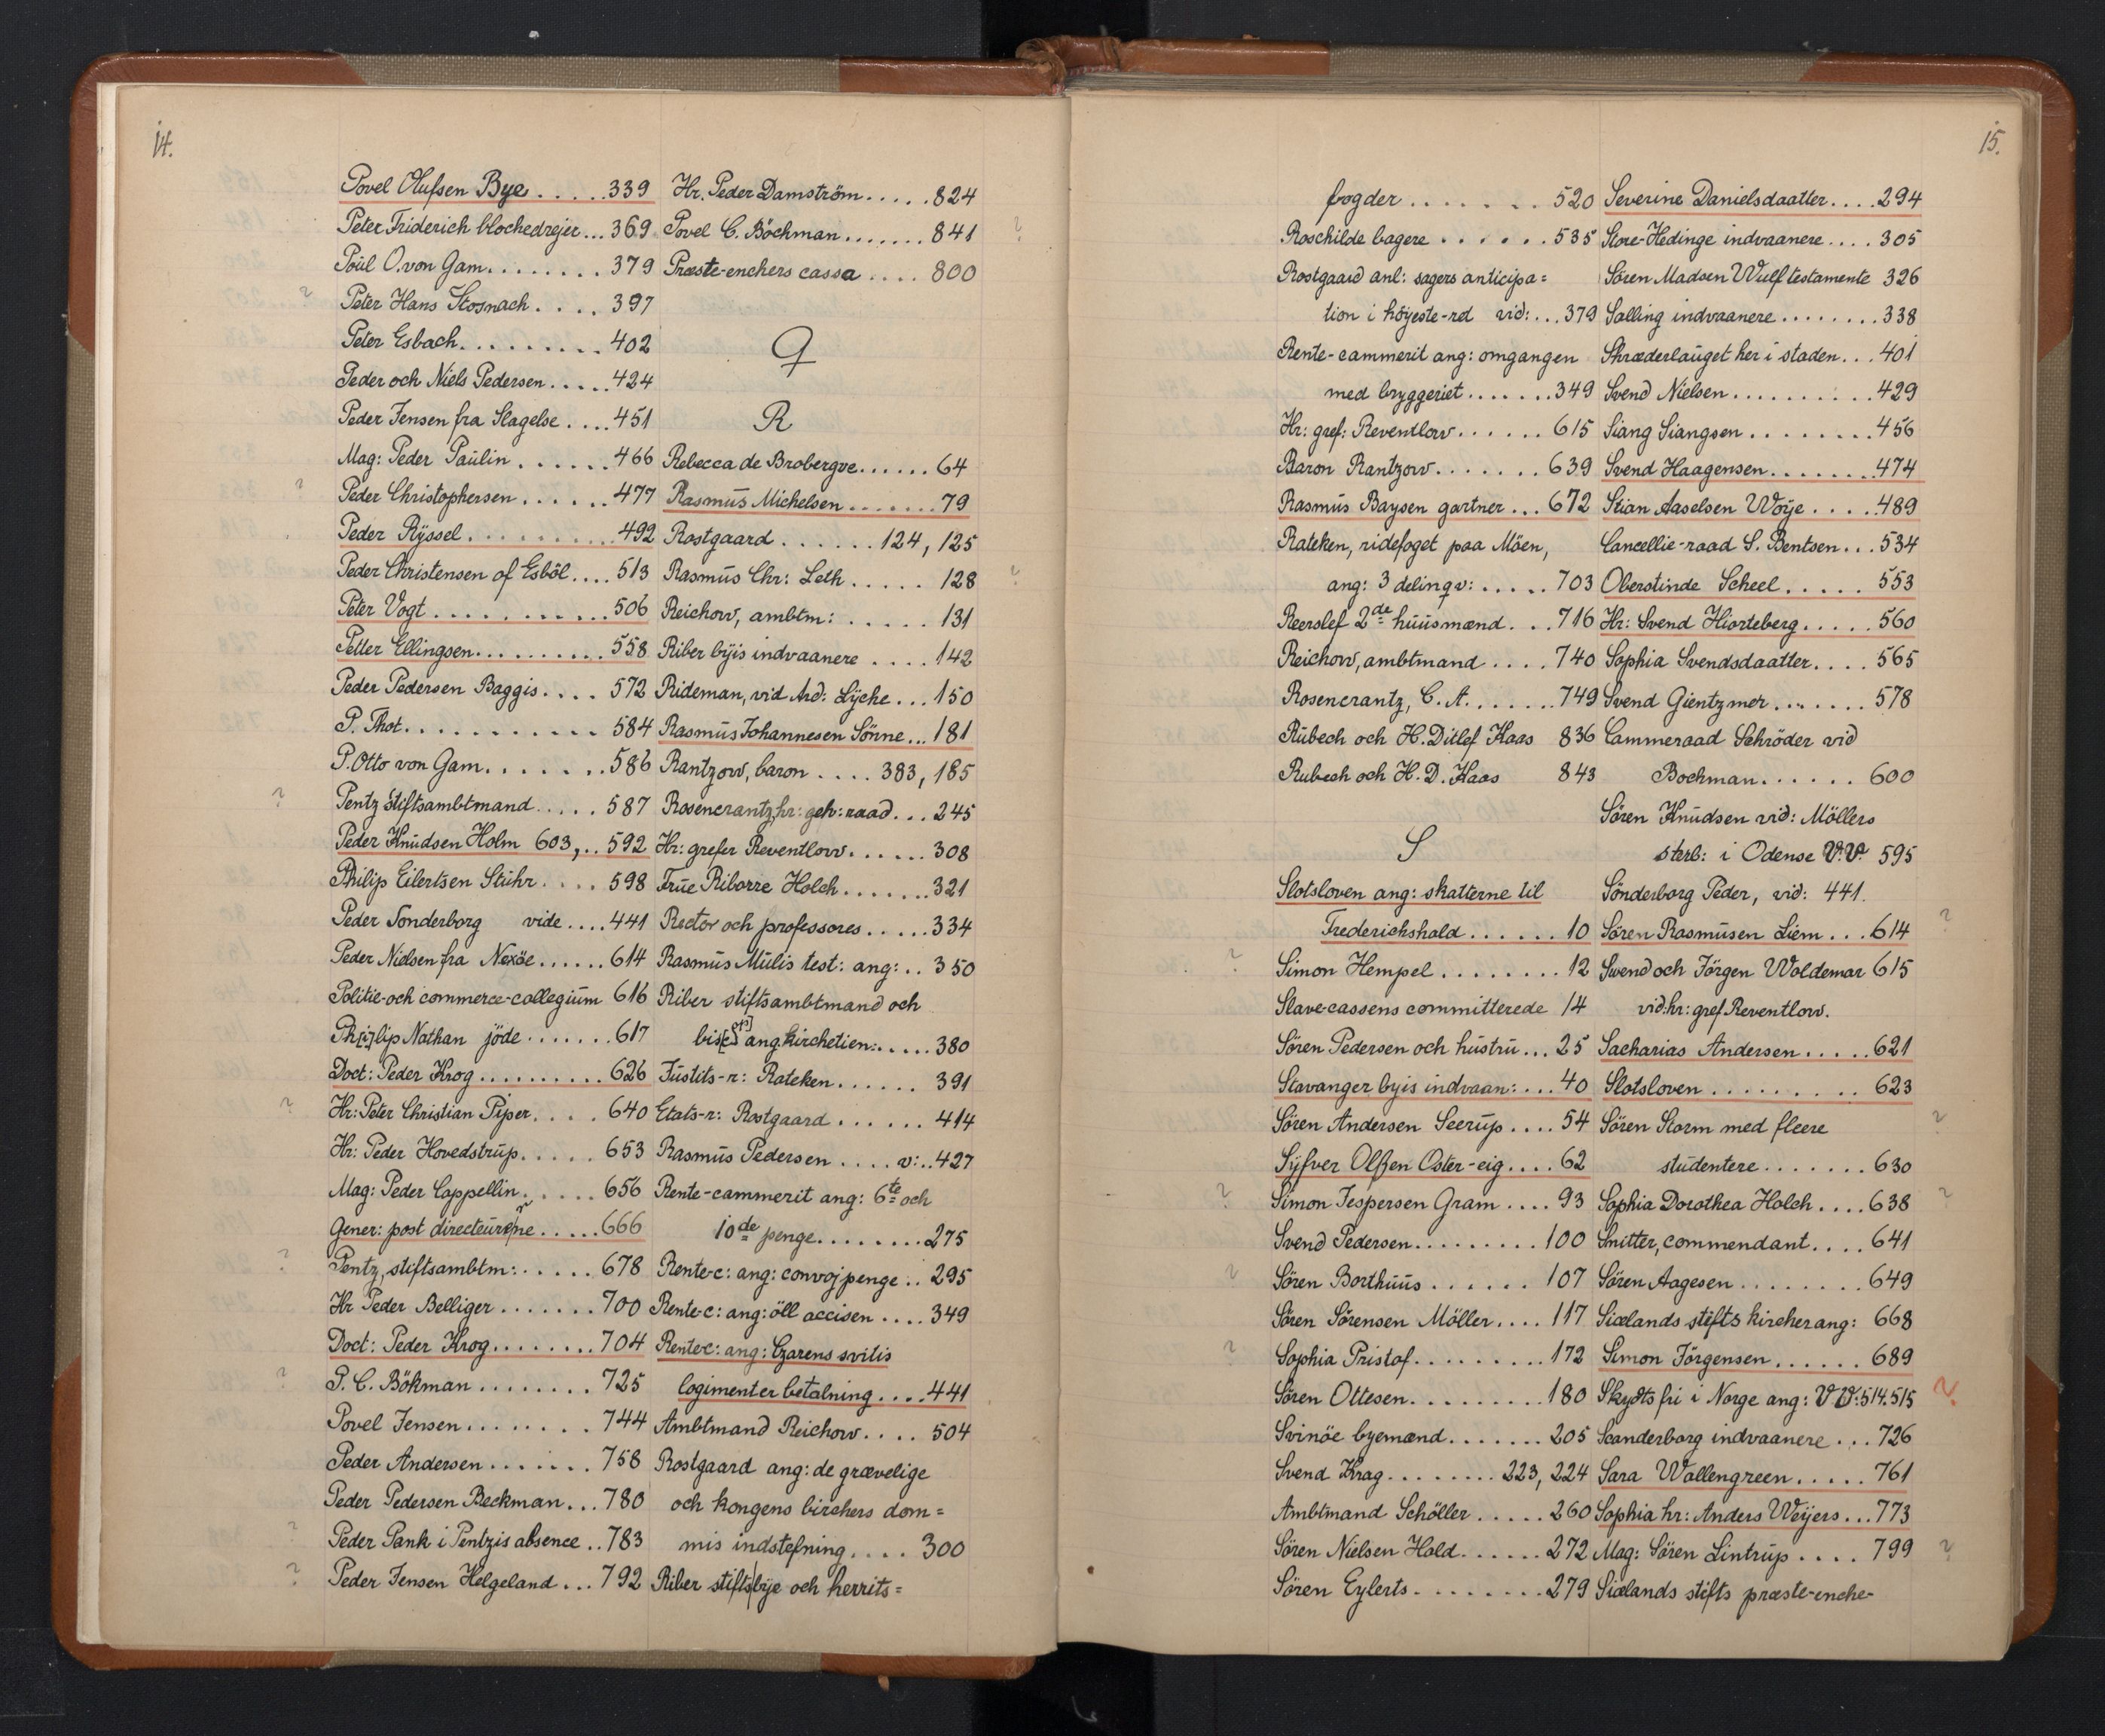 14.
Povel Olufsen Bye.....339
Peter Friderich blochedrejer...369
Poül O. von Gam........379
? Peter Hans Stosnach....397
Peter Esbach.........402
Peder och Niels Pedersen.....424
Peder Jensen fra Slagelse....451
Mag: Peder Paülin......466
? Peder Christophersen......477
Peder Rÿssel..........492
Peder Christensen of Esböl....513
Peter Vogt...........506
Petter Ellingsen..........558
Peder Pedersen Baggis....572
P. Thot...........584
P. Otto von Gam.......586
? Pentz stiftsambtmand.....587
Peder Knüdsen Holm 603,..592
Philip Eilertsen Stühr....598
Peder Sonderborg vide....441
Peder Nielsen fra Nexöe......614
Politie-och commerce-collegiüm 616
Ph[i]lip Nathan jöde.......617
Doct: Peder Krog..........626
? Hr: Peter Christian Piper....640
Hr: Peder Hovedstrüp.....653
Mag: Peder Cappellin.....656
Gener: post directeürerne.....666
? Pentz, stiftsambtm:.....678
Hr Peder Belliger.......700
Doct: Peder Krog........704
? P. C. Bökman........725
Povel Jensen.......744
Peder Andersen......758
Peder Pedersen Beckman...780
? Peder Pank i Pentzis absence..783
? Peder Jensen Helgeland...792
Hr. Peder Damström.....824
Povel C. Böchman.......841 ?
Præste-enchers cassa....800
Q
R
Rebecca de Brobergve......64
Rasmüs Michelsen.......79
Rostgaard......124, 125
Rasmüs Chr: Leth.....128 ?
Reichow, ambtm:.....131
Riber bÿis indvaanere....142
Rideman, vid And: Lÿche...150
Rasmüs Johannesen Sönne...181
Rantzow, baron....383, 185
Rosencrantz, hr: geh: raad...245
Hr: grefer Reventlow......308
Früe Riborre Holch.......321
Rector och professores.....334
Rasmüs Mülis test: ang:..350
Riber stiftsambtmand och
bis[c]op ang. kirchetien:.....380
Jüstits-r: Rateken......391
Etats-r: Rostgaard......414
Rasmüs Pedersen....v:..427
Rente-cammerit ang: 6te och
10de penge........275
Rente-c: ang: convojpenge..295
Rente-c: ang: öll accisen....349
Rente-c: ang: Czarens svitis
logimenter betalning....441
Ambtmand Reichow....504
Rostgaard ang: de grævelige
och kongens birchers dom=
mis indstefning....300
Riber stifts|bÿe och herrits=
15.
fogder.......520
Roschilde bagere......535
Rostgaard anl: sagers anticipa=
tion i höyeste-rd vid:...379
Rente-cammerit ang: omgangen
med bryggeriet.......349
Hr: gref: Reventlow......615
Baron Rantzow.......639
Rasmüs Baysen gartner...672
Rateken, ridefoget paa Möen,
ang: 3 delinqv:.....703
Reerslef 2de hüüsmænd...716
Reichow, ambtmand....740
Rosencrantz, C. A.......749
Rübech och H. Ditlef Kaas 836
Rubech och H. D. Kaas 843
S
Slotsloven ang: skatterne til
Frederichshald......10
? Simon Hempel........12
Slave-cassens committerede 14
Sören Pedersen och hüstrü...25
Stavanger byis indvaan:....40
Sören Andersen Seerüp....54
Sÿfver Olßen Oster-eig....62
? Simon Jespersen Gram....93
Svend Pedersen.........100
? Sören Borthüüs......107
Sören Sörensen Möller....117
? Sophia Pristof.........172
Sören Ottesen.........180
Svinöe byemænd.......205
Svend Krag........223, 224
Ambtmand Schöller.....260
Sören Nielsen Hold......272
Sören Eylerts........279
Severine Danielsdaatter....294
Store-Hedinge indvaanere....305
Sören Madsen Wulf testamente 326
Salling indvaanere........338
Skræderlaüget her i staden...401
Svend Nielsen..........429
Siang Siangsen........456
Svend Haagensen.......474
Stian Aaselsen Wöye....489
Cancellie-raad S. Bentsen...534
Oberstinde Scheel.....553
Hr: Svend Hiorteberg.....560
Sophia Svendsdaatter....565
Svend Gientzmer.......578
Cammeraad Schröder vid
Bochman......600
Sören Knüdsen vid: Möllers
sterb: i Odense V.V. 595
Sönderborg Peder, vid: 441.
Sören Rasmüsen Liem...614 ?
Swend och Jörgen Woldemar 615
vid: hr: gref Reventlow.
Sacharias Andersen.....621
Slotsloven..........623
Sören Storm med fleere ?
stüdentere.......630
Sophia Dorothea Holch....638 ?
Smitter, commendant....641
Sören Aagesen........649
Siælands stifts kircher ang: 668
Simon Jörgensen......689
Skydts fri i Norge ang: V V: 514. 515 ?
Scanderborg indvaanere...726
Sara Wallengreen.....761
Sophia hr: Anders Weÿers...773
Mag: Sören Lintrüp....799 ?
Siælands stifts præste-enche-